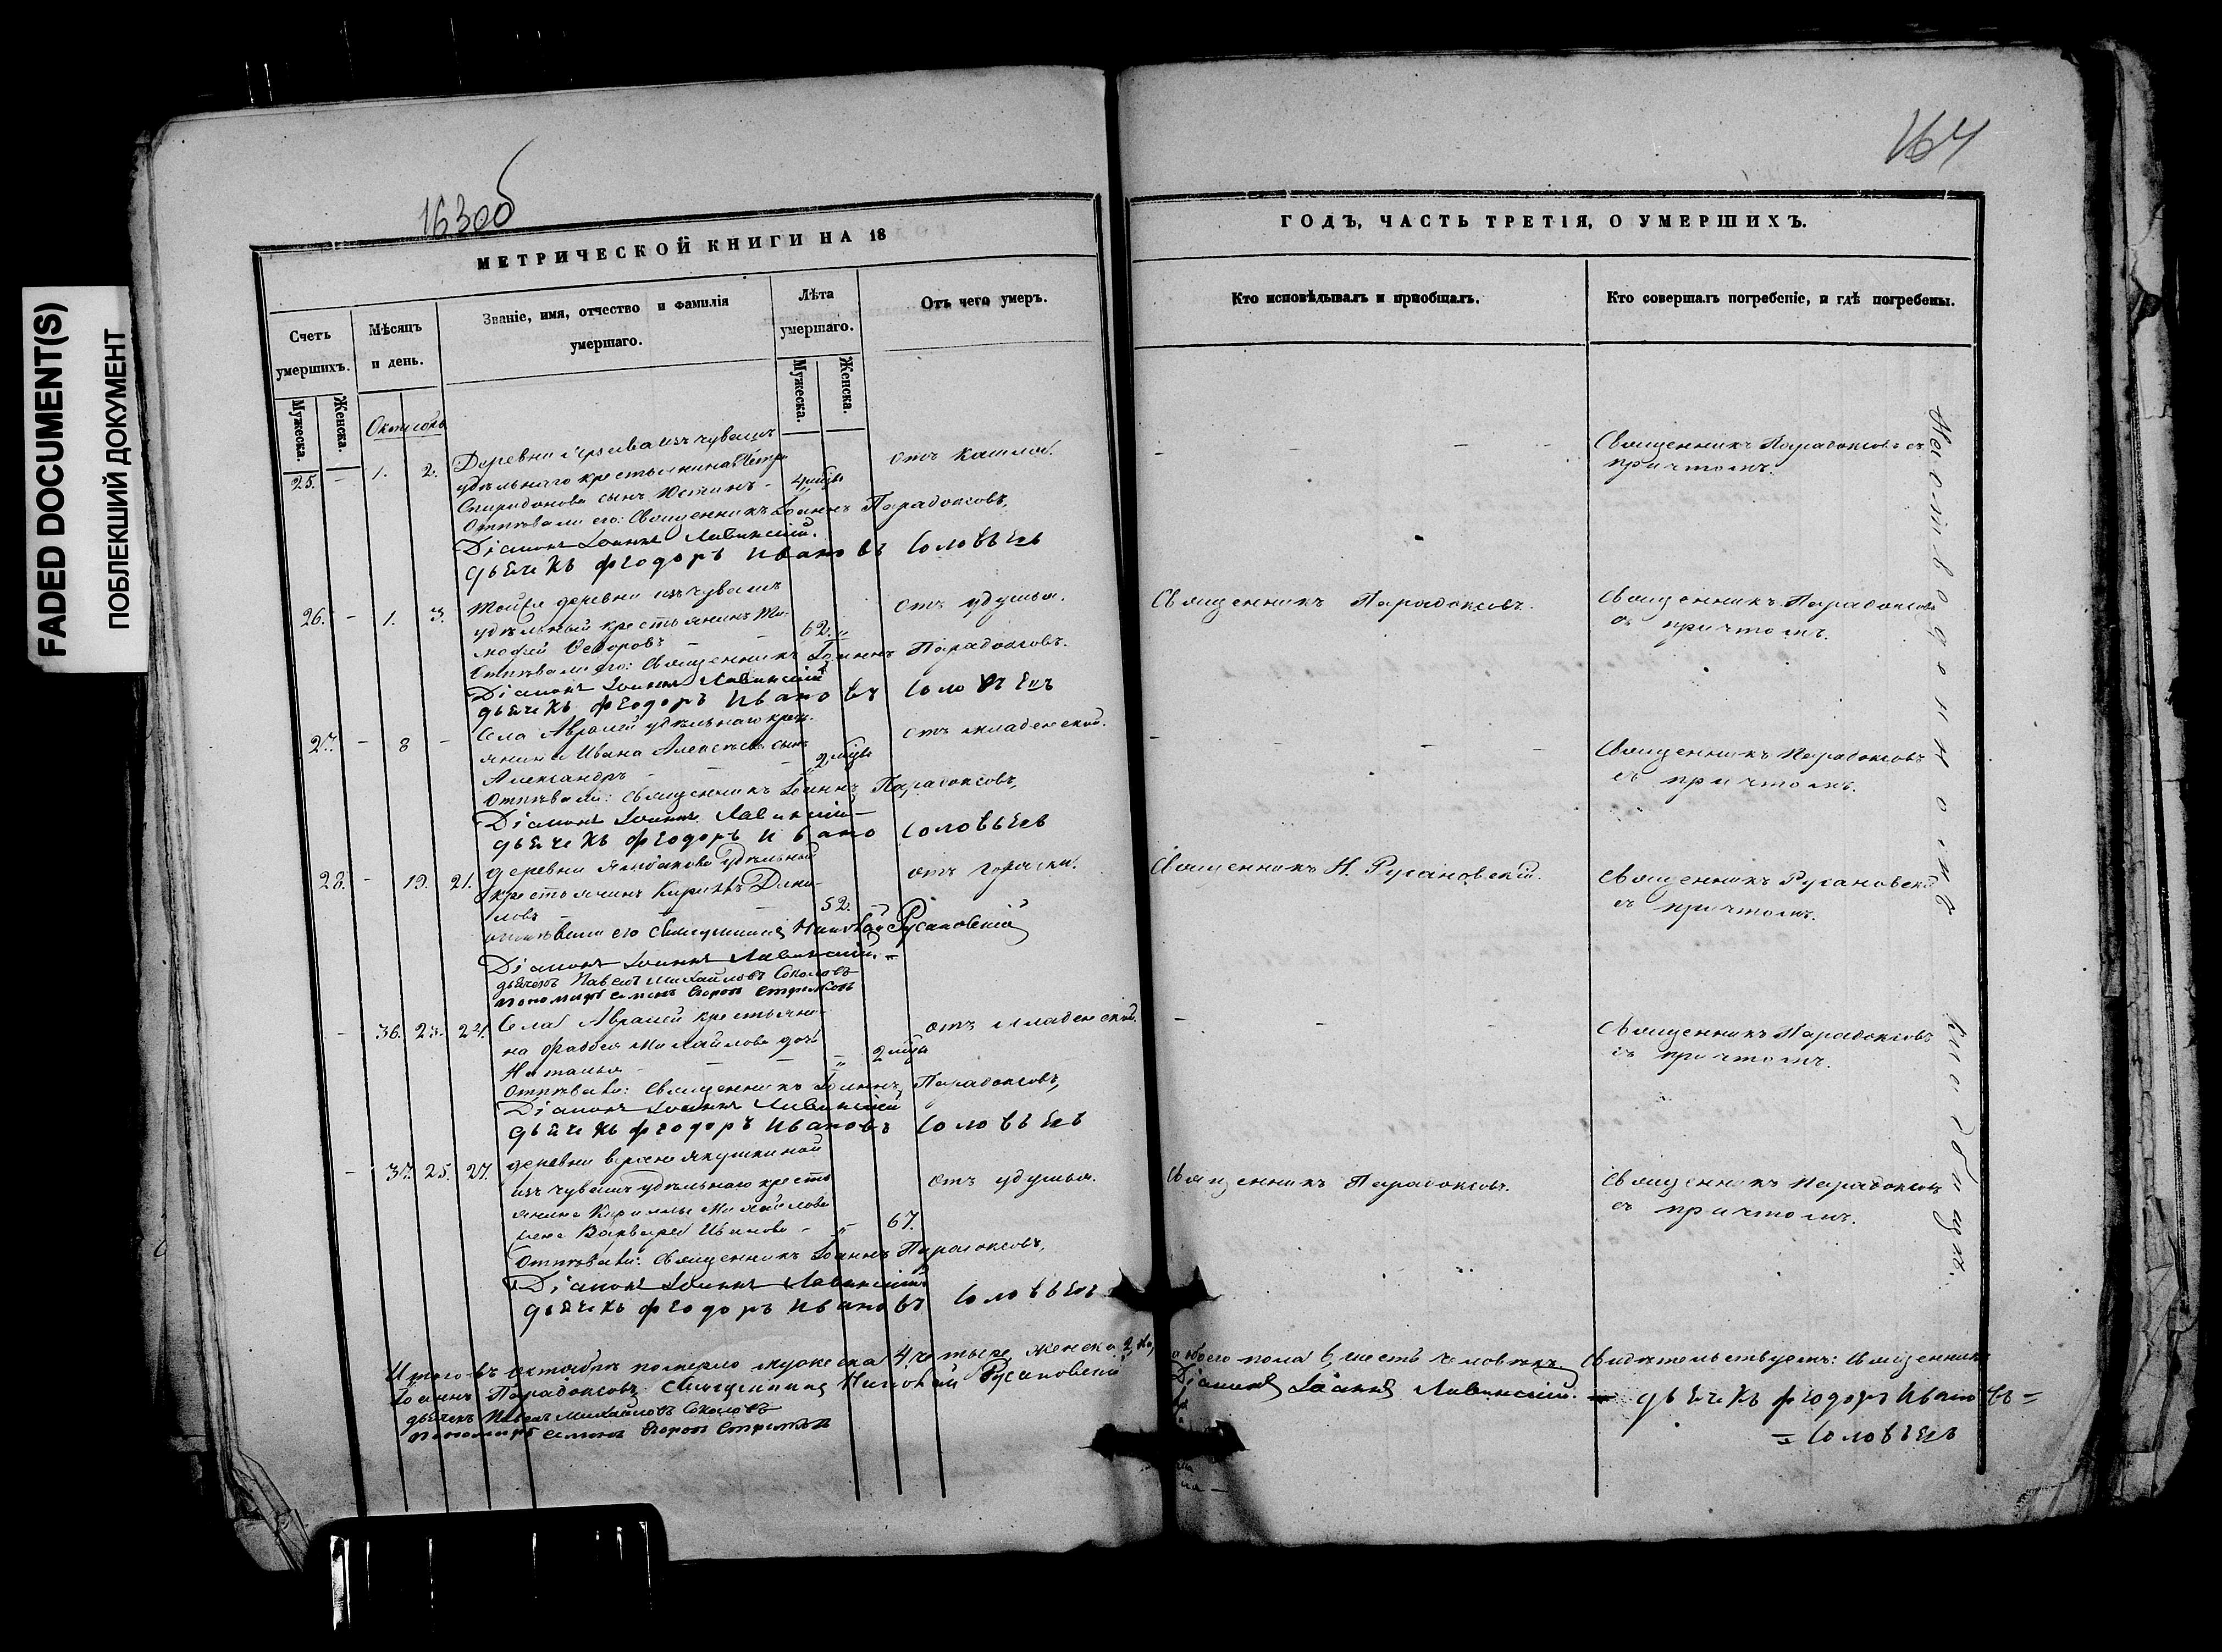 FADED DOCUMENT(S)
ПОБЛЕКШИЙ ДОКУМЕНТ
163об
164
МЕТРИЧЕСКОЙ КНИГИ НА 18
ГОДЪ, ЧАСТЬ ТРЕТІЯ, О УМЕРШИХЪ.
Счетъ умершихъ.
Мѣсяцъ и день.
Званіе, имя, отчество и фамилія умершаго.
Лѣта умершаго.
Отъ чего умеръ.
Кто исповѣдывалъ и пріобщалъ.
Кто совершалъ погребеніе, и гдѣ погребены.
Мужеска.
Женска.
Мужеска.
Женска.
Октябрь
25. - 1. 2. Деревни изъ чувашъ
удѣльнаго крестьянина Петра
Спиридонова сынъ Устинъ - 4 мѣсц
отъ кашля.
Священникъ Парадоксовъ съ
причтомъ.
Отпѣвали его: Священникъ Іоаннъ Парадоксовъ,
Діаконъ Іоаннъ Лавинскій.
дьячекъ Феодоръ Ивановъ Соловьевъ
26. - 1. 3. Тойже деревни изъ чувашъ
удѣльный крестьянинъ Ти-
мофей Ѳедоровъ - - 62. „
отъ удушья.
Священникъ Парадоксовъ.
Священникъ Парадоксовъ
съ причтомъ.
Отпѣвали его: Священникъ Іоаннъ Парадоксовъ.
Діаконъ Іоаннъ Лавинскій
дьячекъ Феодоръ Ивановъ Соловьевъ
27. - 8 - Села Авралей удѣльнаго крест-
янина Ивана Алексѣева сынъ
Александръ - - - 2 мѣсц
отъ младенской.
Священникъ Парадоксовъ
съ причтомъ.
Отпѣвали: Священникъ Іоаннъ Парадоксовъ,
Діаконъ Іоаннъ Лавинскій
дьячекъ Феодоръ Ивано Соловьевъ
28. - 19. 21. деревни удѣльный
крестьянинъ Дани-
ловъ - - - 52. -
отъ горячки.
Священникъ Н. Русановскій.
Священникъ Русановскій
съ причтомъ.
отпѣвали его Священникъ Николай Русановскій
Діаконъ Іоаннъ Лавинскій. =
дьячекъ Павелъ Михайловъ Соколовъ
пономарь Семенъ
- 36. 23. 24. Села Авралей крестьяни-
на Фаддея Михайлова дочь
Наталья - - - „ 2 мѣсц
отъ младенской.
Священникъ Парадоксовъ
съ причтомъ.
Отпѣвали: Священникъ Іоаннъ Парадоксовъ,
Діаконъ Іоаннъ Лавинскій
дьячекъ Феодоръ Ивановъ Соловьевъ
- 37. 25. 27. деревни
изъ чувашъ удѣльнаго кресть
янина Кириллы Михайлова
жена Варвара Иванова - „ 67.
отъ удушья.
Священникъ Парадоксовъ.
Священникъ Парадоксовъ
съ причтомъ.
Отпѣвали: Священникъ Іоаннъ Парадоксовъ,
Діаконъ Іоаннъ Лавинскій
дьячекъ Феодоръ Ивановъ Соловьевъ
Итого въ октябрѣ померло мужеска 4, четыре, женска 2, два, обоего пола 6, шесть человѣкъ. Свидѣтельствуемъ: Священникъ
Іоаннъ Парадоксовъ. Священникъ Николай Русановскій Діаконъ Іоаннъ Лавинскій. = дьячекъ Феодоръ Ивановъ =
дьячекъ Павелъ Михайловъ Соколовъ = Соловьевъ
пономарь Семенъ
На отведенномъ кладбищѣ.